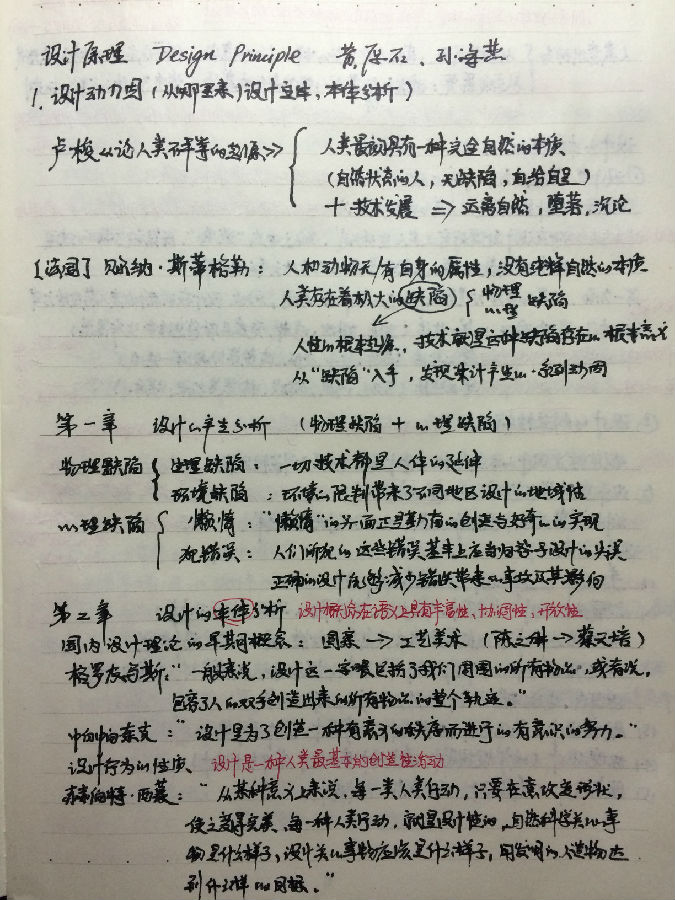 设计原理 Design Principle 黄厚石、孙海燕
1.设计动力因(从哪里来)设计主体,本体分析)
卢梭《论人类不平等的起源》⇒ 人类最初具有一种完全自然的本质
(自然状态的人,无缺陷,自给自足)
+ 技术发展 ⇒ 远离自然,堕落,沉沦
[法国] 贝尔纳·斯蒂格勒: 人和动物无/有自身的属性,没有纯粹自然的本质
人类存在着极大的缺陷) { 物理 心理 缺陷
人性的根本起源,技术就是这种缺陷存在的根本意义
从“缺陷”入手,发现设计产生的一系列动因
第一章 设计的产生分析 (物理缺陷 + 心理缺陷)
物理缺陷 { 生理缺陷: 一切技术都是人体的延伸
环境缺陷: 环境的限制带来了不同地区设计的地域性
心理缺陷 { 懒惰: “懒惰”的另一面正是勤奋的创造与好奇心的实现
犯错误: 人们所犯的这些错误基本上应当归咎于设计的失误
正确的设计能够减少错误带来的事故及其影响
第二章 设计的本体分析 设计概念在语义上具有丰富性、协调性,开放性
国内设计理论的早期概念: 图案 → 工艺美术 (陈之佛 → 蔡元培)
格罗皮乌斯:“一般来说,设计这一字眼包括了我们周围的所有物品,或者说,
包容了人的双手创造出来的所有物品的整个轨迹。”
帕帕奈克:“设计是为了创造一种有意义的秩序而进行的有意识的努力。”
设计行为的性质、 设计是一种人类最基本的创造性活动
赫伯特·西蒙:“从某种意义上来说,每一类人类行动,只要在意改变形状,
使之变得完美,每一种人类行动,就是设计性的,自然科学关心事
物是什么样子,设计关心事物应该是什么样子,用发明的人造物达
到什么样的目标。”